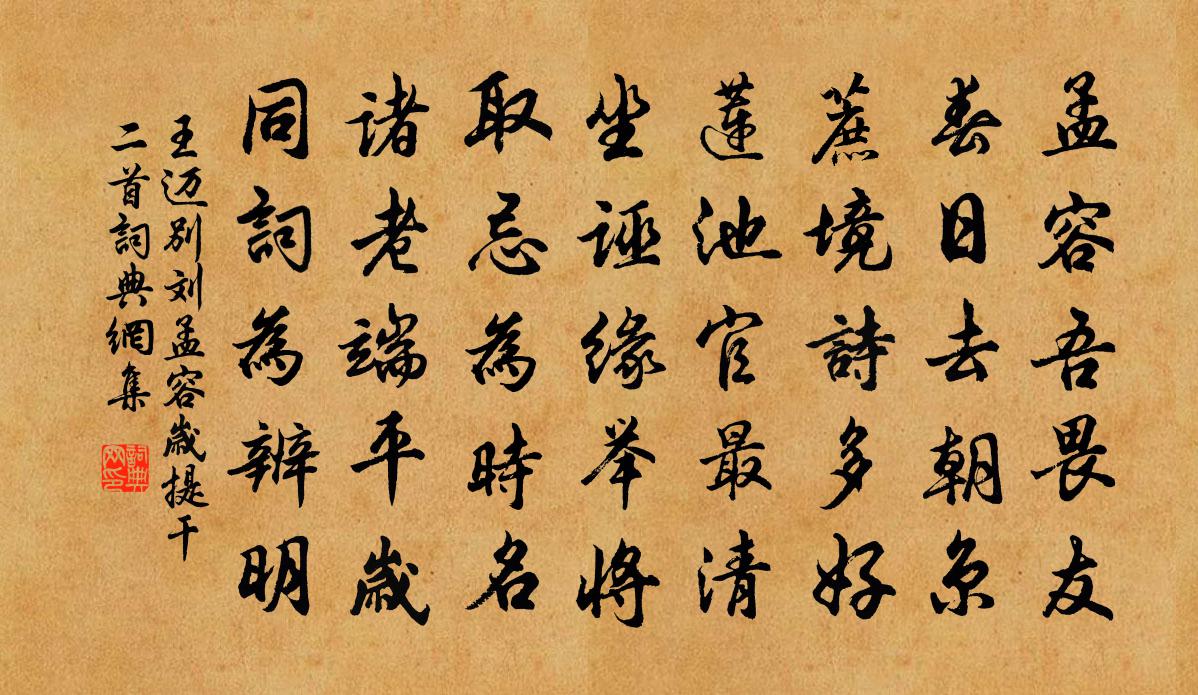 孟容吾畏友
春日去朝京
蔗境詩多好
蓮池官最清
坐誣緣举將
取忌為時名
諸老端平歲
同詞為辨明
王迈别刘孟容歲提干
二首詞典網集
詞典网印